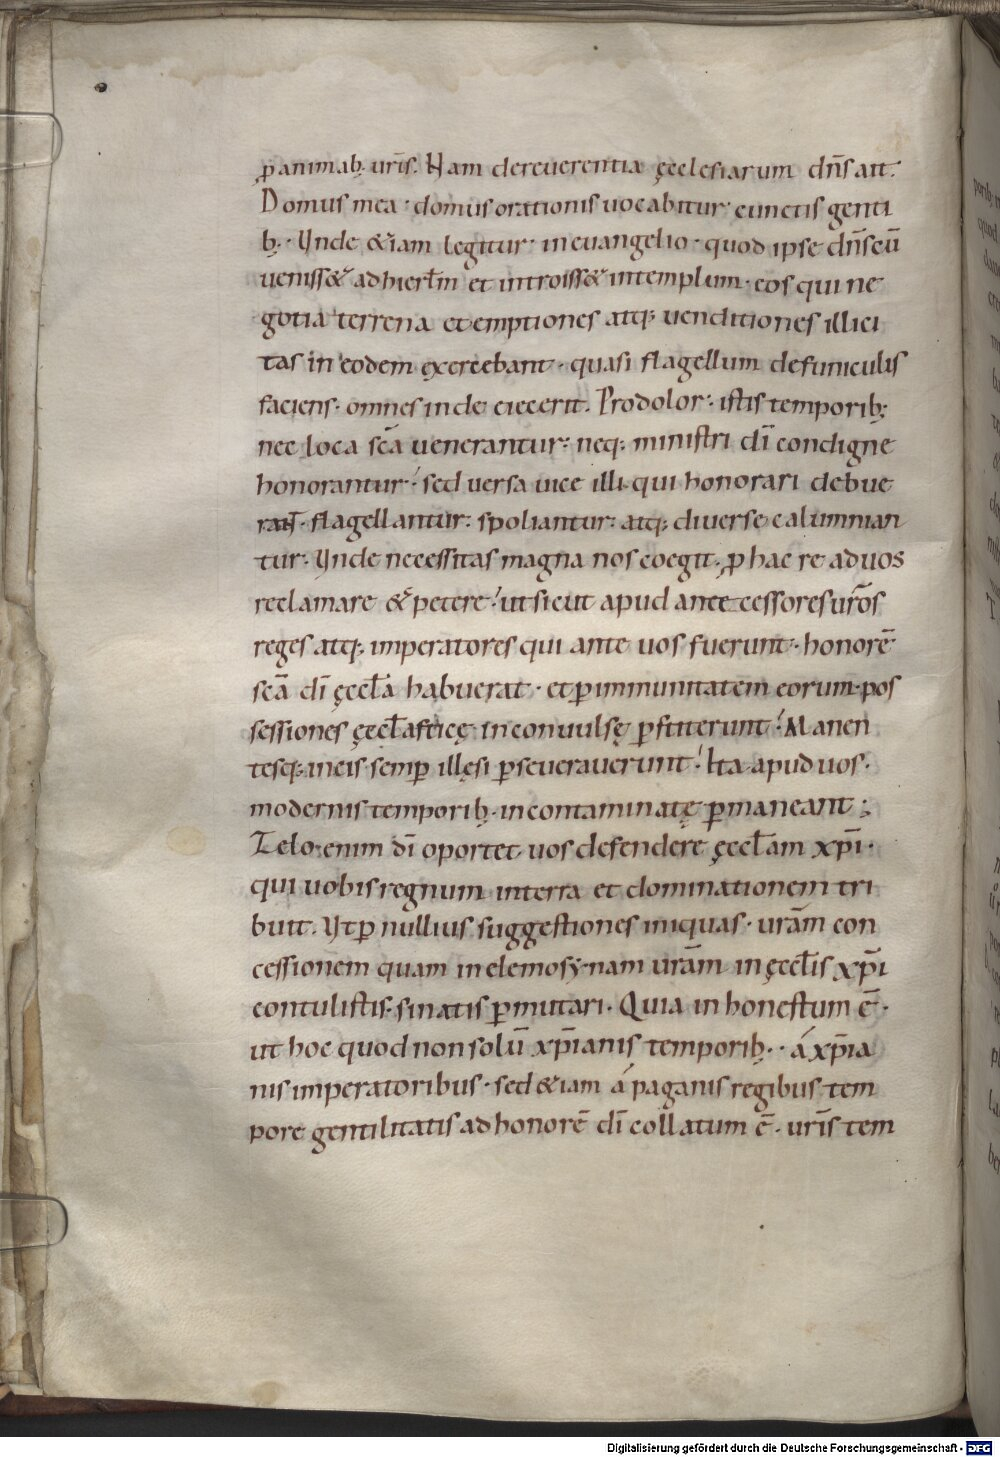 ꝓ animab; ur̄is. Nam de reuerentia ęcclesiarum dn̄s ait.
Domus mea · domus orationis uocabitur cunctis genti
b;· Unde &iam legitur · in euangelio · quod ipse dn̄s cū
uenisset ad hierłm et introiss& in templum · eos qui ne
gotia terrena et emptiones atq; uenditiones illici
tas in eodem exercebant · quasi flagellum de funiculis
faciens · omnes inde eiecerit. Prodolor · istis temporib;
nec loca sc̄a uenerantur: neq; ministri dī condigne
honorantur · sed uersa uice illi qui honorari debue
rant · flagellantur: spoliantur: atq; diuerse calumnian
tur · Unde necessitas magna nos coegit · ꝓ hac re ad uos
reclamare & petere · ut sicut apud antecessores ur̄os
reges atq; imperatores qui ante uos fuerunt · honorē
sc̄a dī ęccła habuerat · et ꝑ immunitatem eorum pos
sessiones ęccłasticę inconuulsę ꝑstiterunt · Manen
tesq; in eis semꝑ illęsi ꝑseuerauerunt · Ita apud uos ·
modernis temporib; incontaminatę ꝑmaneant ;
Zelo enim dī oportet uos defendere ęccłam xp̄i ·
qui uobis regnum in terra et dominationem tri
buit. Ut ꝑ nullius suggestiones iniquas · ur̄am con
cessionem quam in elemosynam ur̄am in ęccłis xp̄i
contulistis · sinatis ꝑmutari · Quia inhonestum ē ·
ut hoc quod non solū xp̄ianis temporib;· á xp̄ia
nis imperatoribus · sed &iam á paganis regibus tem
pore gentilitatis ad honorē dī collatum ē · ur̄is tem
Digitalisierung gefördert durch die Deutsche Forschungsgemeinschaft - DFG